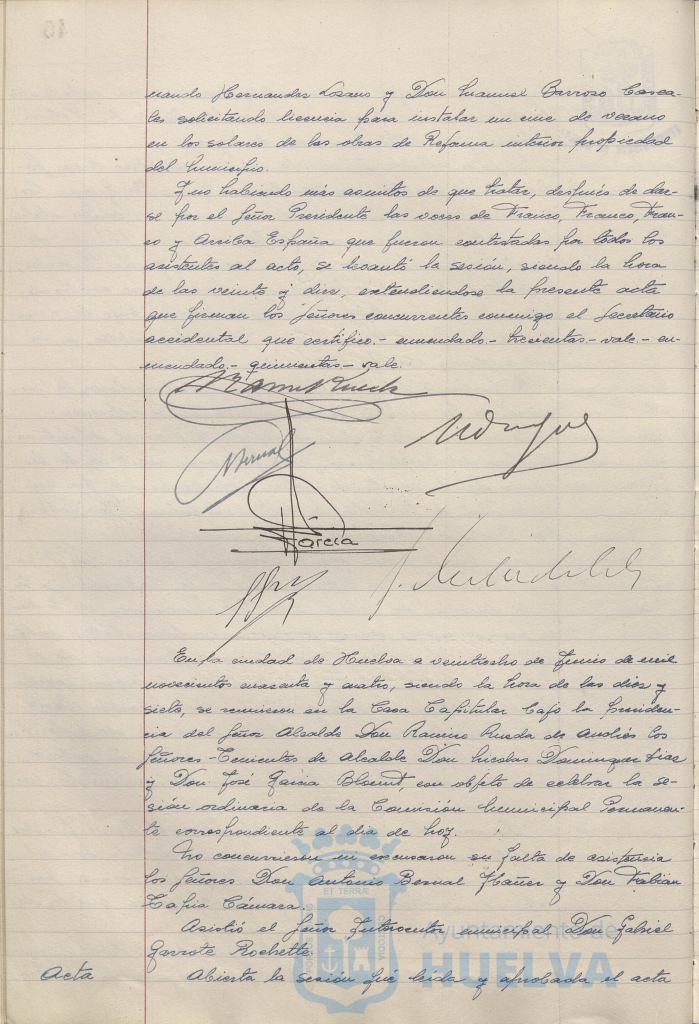 nando Hernandez Lozano y Don Manuel Barroso Casca-
les solicitando licencia para instalar un cine de verano
en los solares de las obras de Reforma interior propiedad
del municipio.
Y no habiendo más asuntos de que tratar, después de dar-
se por el Señor Presidente las voces de Franco, Franco, Fran-
co y Arriba España que fueron contestadas por todos los
asistentes al acto, se levantó la sesión, siendo la hora
de las veinte y diez, extendiendose la presente acta
que firman los Señores concurrentes conmigo el Secretario
accidental que certifico.- enmendado.- trescientas - vale.- en-
mendado.- quinientas - vale.
Bernal
García
En la ciudad de Huelva a veintiocho de Junio de mil
novecientos cuarenta y cuatro, siendo la hora de las diez y
siete, se reunieron en la Casa Capitular bajo la Presiden-
cia del Señor Alcalde Don Ramiro Rueda de Andrés los
Señores-Tenientes de Alcalde Don Nicolas Dominguez Diaz
y Don José Garcia Blount, con objeto de celebrar la se-
sión ordinaria de la Comisión Municipal Permanen-
te correspondiente al dia de hoy.
No concurrieron ni excusaron su falta de asistencia
los Señores Don Antonio Bernal Yañez y Don Fabian
Tapia Cámara.
Asistió el Señor Interventor municipal Don Gabriel
Garrote Rochette.
Acta Abierta la sesión fué leida y aprobada el acta
ET TERRÆ
Ayuntamiento de
HUELVA